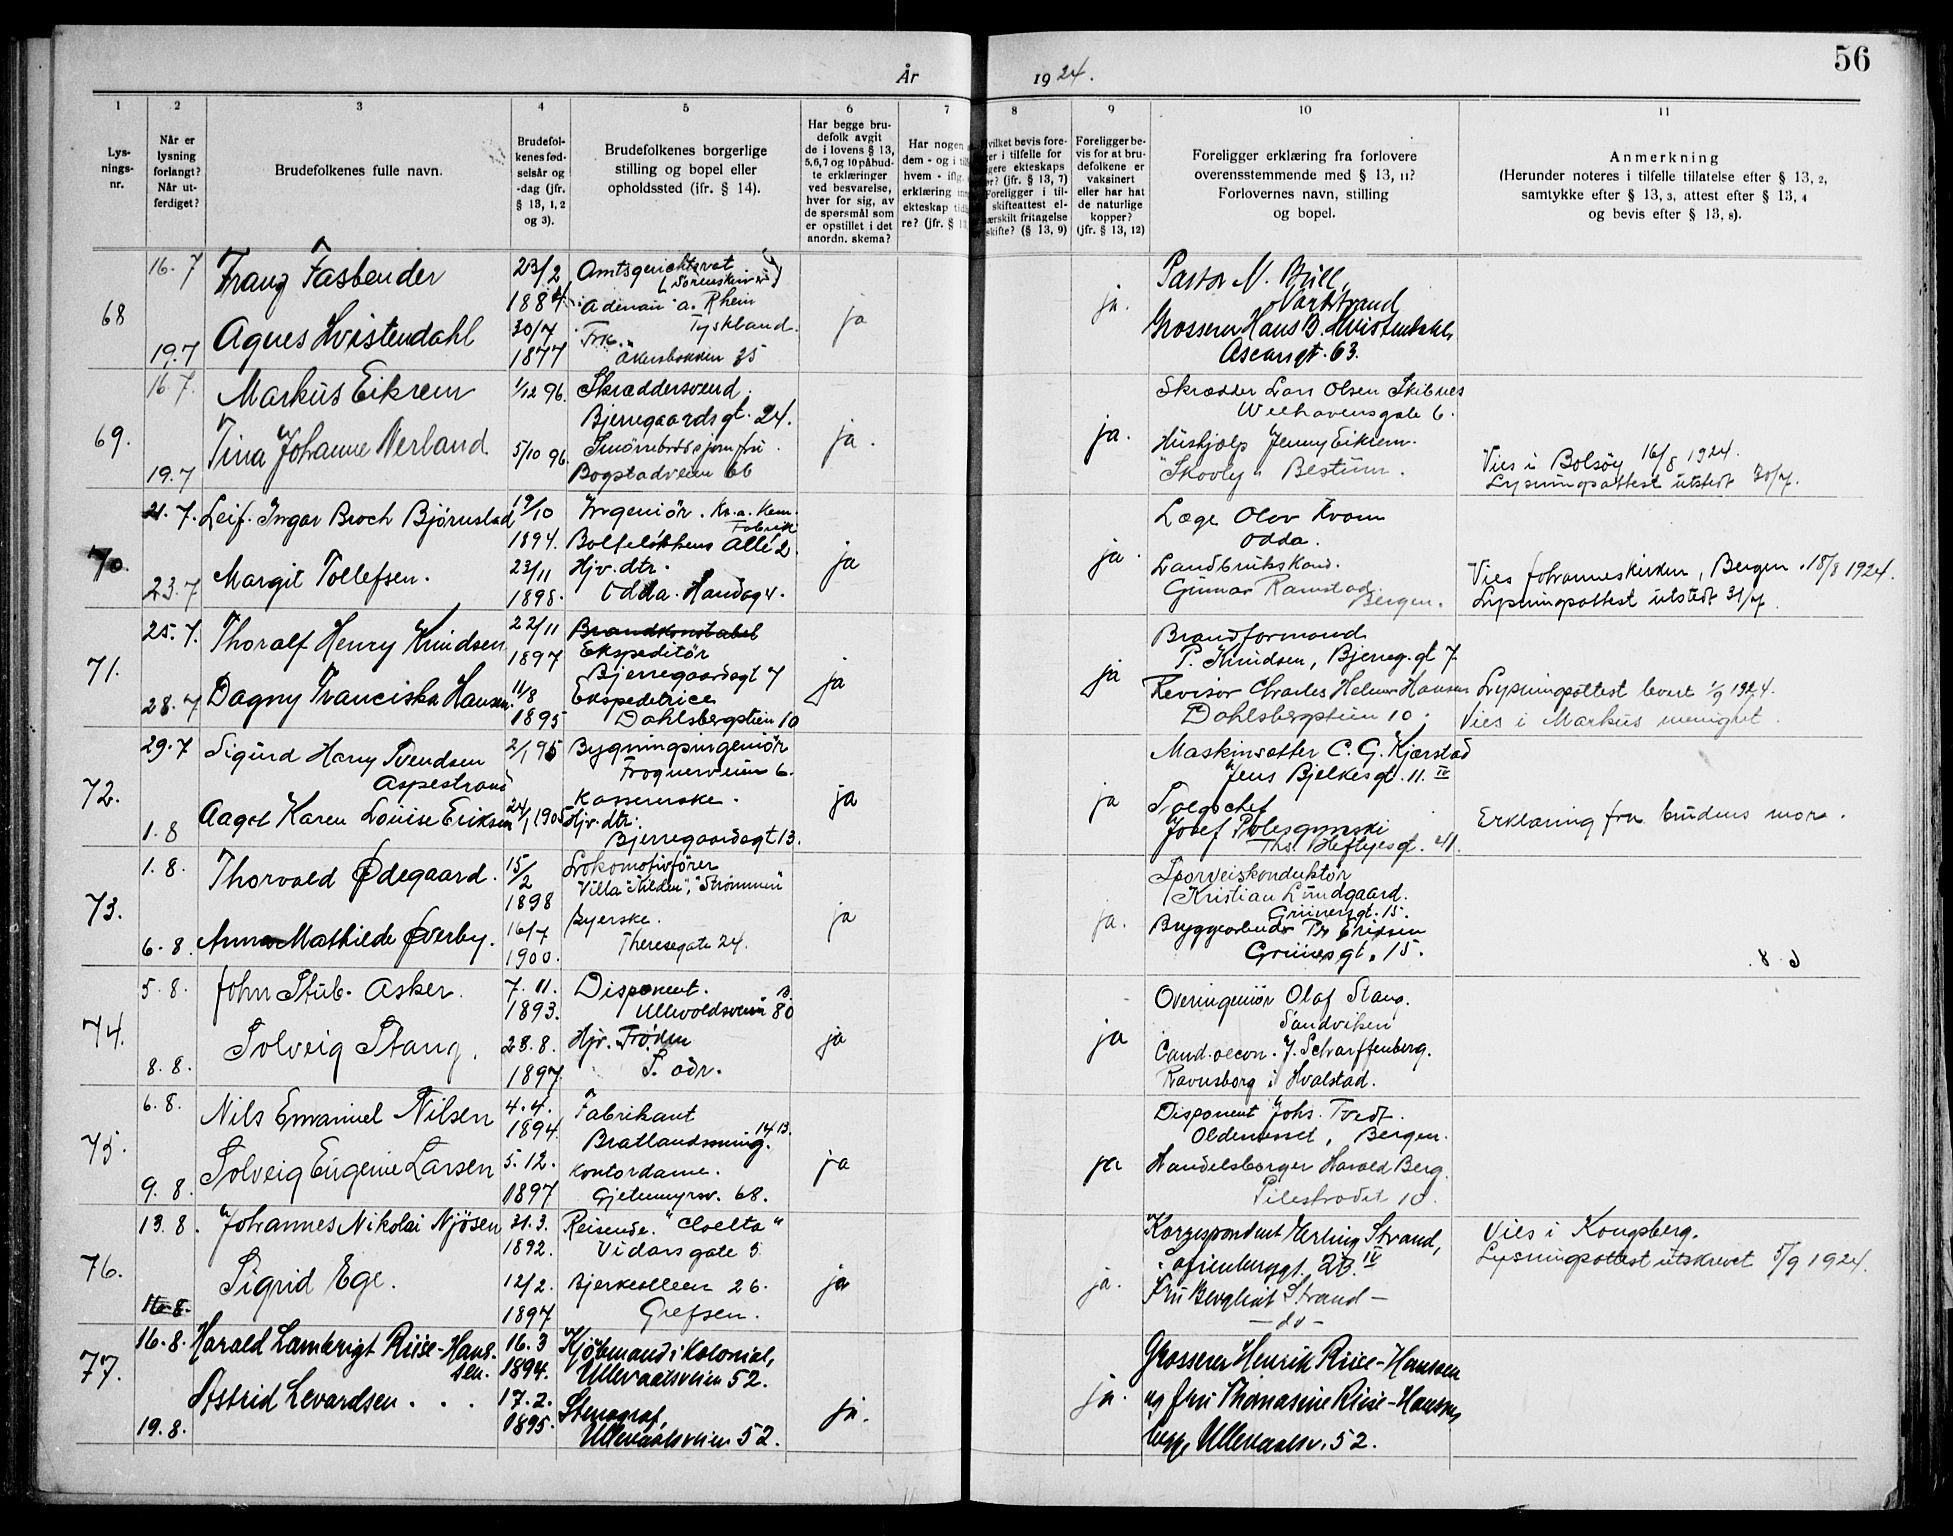 56
År 1924.
1 2 3 4 5 6 7 8 9 10 11
Lys-
nings-
nr.
Når er
lysning
forlangt?
Når ut-
ferdiget?
Brudefolkenes fulle navn.
Brudefol-
kenes fød-
selsår og
-dag (jfr.
§ 13, 1, 2
og 3).
Brudefolkenes borgerlige
stilling og bopel eller
opholdssted (ifr. § 14).
Har begge bru-
defolk avgit
de i lovens § 13,
5,6,7 og 10 påbud-
te erklæringer
ved besvarelse,
hver for sig, av
de spørsmål som
er opstillet i det
anordn. skema?
Har nogen
dem - og i
hvem - iflg.
erklæring
ekteskap
re? (jfr. § 13
bevis fore-
i tilfelle for
ekteskaps
(jfr. § 13, 7)
Foreligger i til-
skifteattest el-
fritagelse
skifte? (§ 13, 9)
Foreligger be-
vis for at bru-
defolkene er
vaksinert
eller har hat
de naturlige
kopper?
(jfr. § 13, 12)
Foreligger erklæring fra forlovere
overensstemmende med § 13, 11?
Forlovernes navn, stilling
og bopel.
Anmerkning
(Herunder noteres i tilfelle tillatelse efter § 13, 2,
samtykke efter § 13, 3, attest efter § 13, 4
og bevis efter § 13, 8).
68
16. 7
19.7
Franz Fasbender
Agnes Hvistendahl
23/2
1884
30/7
1877
Amtsgerichtsrat
Adenau a. Rhein
Tyskland.
Frk.
Akersbakken 35
ja
ja.
Pastor N. Bull,
Grosserer Hans B. Hvistendahl,
63.
69.
16. 7.
19.7
Markus Eikrem
Tina Johanne Nerland
1/12 96.
5/10 96.
Skræddersvend,
Bjerregaardsgt. 24.
Smørrebrødsjomfru.
Bogstadveien 66
ja.
ja.
Skrædder Lars Olsen Skibnes
Welhavensgate 6.
Hushjelp Jenny Eikrem.
"Skovly" Bestum.
Vies i Bolsøy 16/8 1924.
Lysningsattest utstedt 30/7.
70.
21. 7.
23.7
Leif. Ingar Broch Bjørnstad
Margit Tollefsen.
19/10
1894.
23/11
1898.
Ingeniør.
Fabrik
Allé 2.
Hjv. dtr.
Odda.
ja
ja.
Læge Olav Kvam
Odda.
Landbrukskand.
Gunnar Ramstad
Bergen.
Vies Johanneskirken, Bergen. 18/8 1924.
Lysningsattest utstedt 31/7.
71.
25. 7.
28. 7
Thoralf Henry Knudsen
Dagny Franciska Hansen.
22/11
1897
11/8
1895
Brandkonstabel
Ekspeditør
Bjerregaardsgt 7
Ekspeditrice
Dahlsbergstien 10
ja
ja
Brandformand
P. Knudsen, Bjerreg.gt 7.
Revisor Charles Helmer Hansen
Dahlsbergstien 10.
Lysningsattest levert 1/9 1924.
Vies i Markus menighet.
72.
29. 7
1. 8
Sigurd Harry Svendsen
Aspestrand
Aagot Karen Louise Eriksen
2/1 95
24/1 1905
Bygningsingeniør
Frognerveien 6.
Kassererske.
Hjv. dtr.
Bjerregaardsgt 13.
ja
ja
Maskinsætter C. G. Kjærstad
Jens Bjelkesgt. 11. IV
Josef
Ths. Heftyesgt. 41.
Erklæring fra brudens mor.
73.
1. 8.
6. 8.
Thorvald Ødegaard.
Anna Mathilde Øverby.
15/2
1898
16/7
1900.
Lokomotivfører
Villa "Tilden", "Strømmen"
Syerske.
Theresegate 24.
ja
ja.
Sporveiskonduktør
Kristian Lundgaard.
Grünersgt. 15.
Bryggearbeider
Grünersgt. 15.
74.
5. 8.
8. 8.
John Stub. Asker.
Solveig Stang.
7. 11.
1893.
28. 8.
1897.
Disponent.
Ullevoldsveien 80 B.
Hjv.
S. adr.
ja
ja
Overingeniør Olaf Stang.
Sandviken
Cand. oecon. J. Scharffenberg.
Ravnsborg i Hvalstad.
75.
6. 8.
9. 8.
Nils Emanuel Nilsen
Solveig Eugenie Larsen
4. 4.
1894.
5. 12.
1897
Fabrikant
14 B.
Kontordame.
Gjetemyrsv. 68.
ja
ja
Disponent Johs. Tvedt.
Bergen.
Handelsborger Harald Berg.
Pilestrædet 10.
76.
13. 8.
16. 8.
Johannes Nikolai Njøsen
Sigrid Ege.
21. 3.
1892.
12/2.
1897
Reisende. "Cloetta"
Vidarsgate 5
Bjerkealleen 26.
Grefsen.
ja
ja.
Korrespondent Erling Strand,
Sofienberggt. 23. IV
Fru Bergliot Strand —
— do —
Vies i Kongsberg.
Lysningsattest utskrevet 5/9 1924.
77.
16. 8.
19. 8.
Harald Lambrigt Riise-Hans-
sen.
Astrid Levardsen . . .
16. 3
1894.
17. 2.
1895.
Kjøbmand i Kolonial,
Ullevaalsveien 52.
Stenograf,
Ullevaalsveien 52.
ja.
ja.
Grosserer Henrik Riise-Hanssen
og fru Thomasine Riise-Hanssen,
begge, Ullevaalsv. 52.